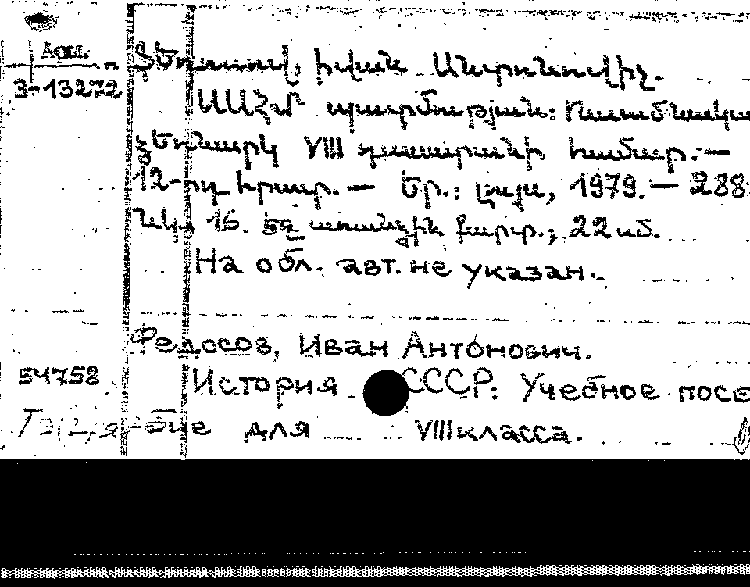 3-13272
Ֆեդոսով, Իվան Անտոնովիչ.
ՍՍՀՄ պատմություն: Ուսումնակա
ձեռնարկ VIII դասարանի համար.—
12-րդ հրատ.— Եր.: Լույս, 1979.— 288
նկ., 16. առանձին քարտ.; 22 սմ.
На обл. авт. не указан.
Федосов, Иван Антонович.
54758 История СССР: Учебное посо
бие для VIII класса.